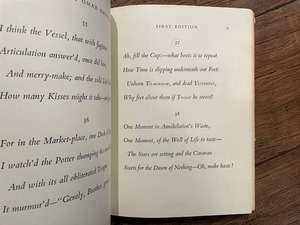 OMAR
35
I think the Vessel, that with fugitive
Articulation answer'd, once did
And merry-make; and the
How many Kisses might it take—and
36
For in the Market-place, one Dusk of
I watch'd the Potter thumping his
And with its all obliterated Tongue
It murmur'd—"Gently, Brother,
FIRST EDITION
37
Ah, fill the Cup:—what boots it to repeat
How Time is slipping underneath our Feet:
Unborn TO-MORROW, and dead YESTERDAY,
Why fret about them if TO-DAY be sweet!
38
One Moment in Annihilation's Waste,
One Moment, of the Well of Life to taste—
The Stars are setting and the Caravan
Starts for the Dawn of Nothing—Oh, make haste!